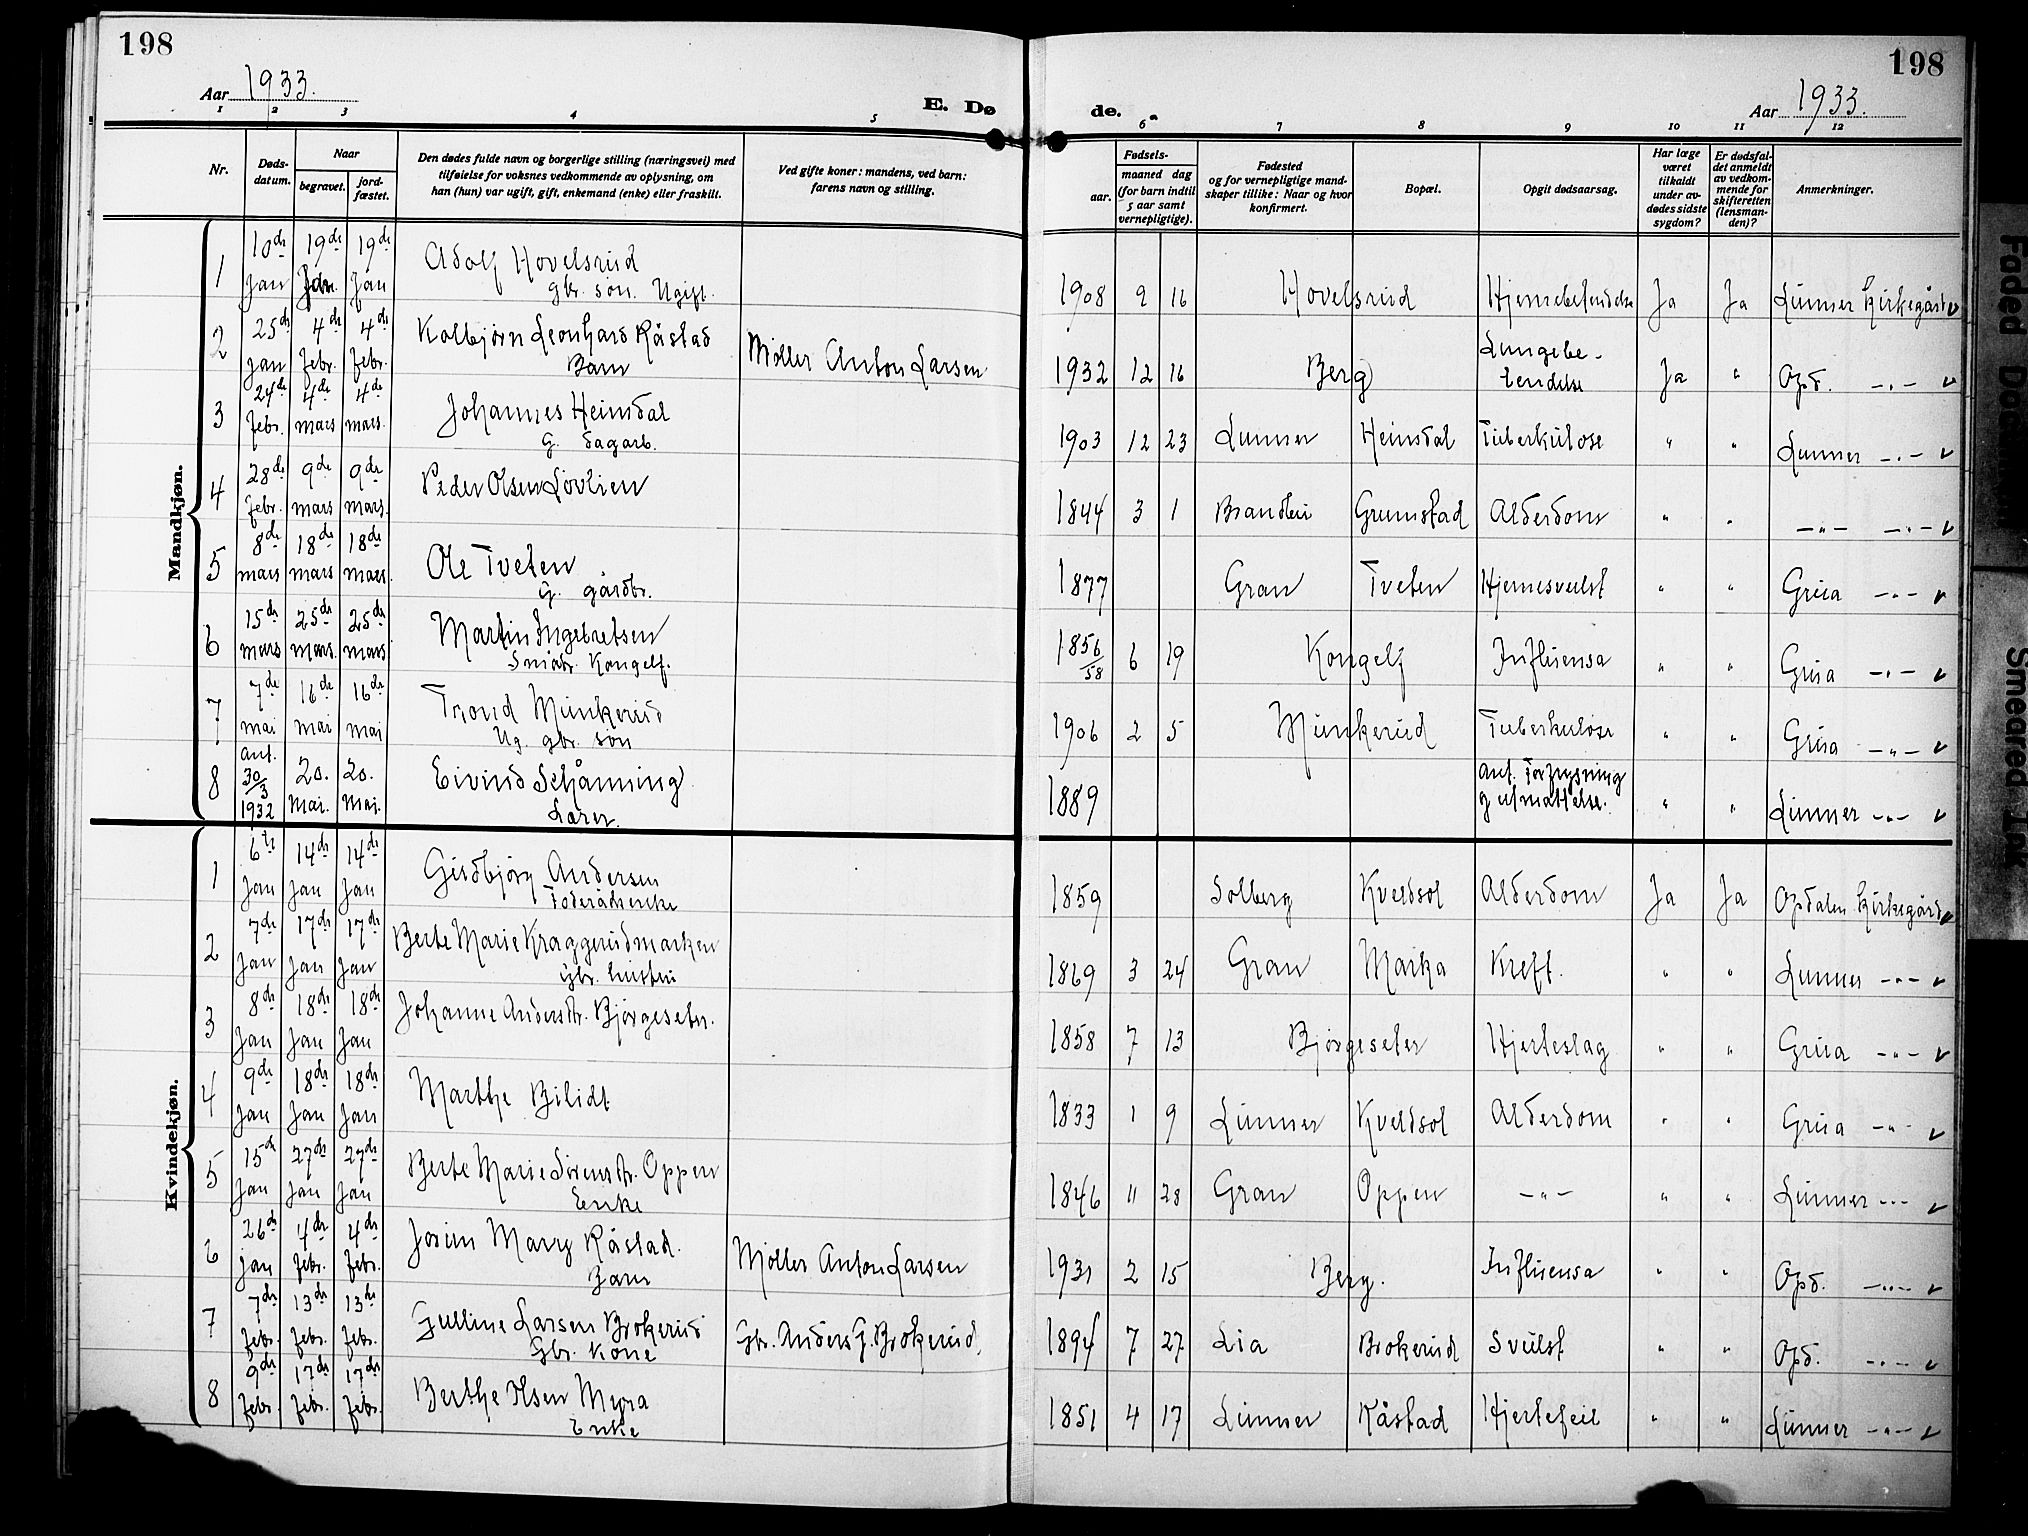 198
Aar 1933.
E. Dø
1 2 3 4 5
Nr.
Døds-
datum.
Naar
begravet.
jord-
fæstet.
Den dødes fulde navn og borgerlige stilling (næringsvei) med
tilføielse for voksnes vedkommende av oplysning, om
han (hun) var ugift, gift, enkemand (enke) eller fraskilt.
Ved gifte koner: mandens, ved barn:
farens navn og stilling.
Mandkjøn.
1 10de Jan 19de Jan. 19de Jan Adolf Hovelsrud
gbr. søn. Ugift.
2 25de jan 4de febr. 4de febr. Kolbjørn Leonhard Råstad
Barn Møller Anton Larsen
3 24de febr. 4de mars 4de mars. Johannes Heimdal
G. dagarb.
4 28de febr. 9de mars 9de mars. Peder Olsen Lovlien
5 8de mars 18de mars 18de mars. Ole Tveten
G. gårdbr.
6 15de mars 25de mars. 25de mars Martin Ingebretsen
Småbr. Kongelf.
7 7de mai 16de mai 16de mai Trond Munkerud
Ug. gbr. søn
8 ant. 30/3 1932 20. Mai. 20. Mai. Eivind Schånning
Lærer.
Kvindekjøn.
1 6te Jan 14de Jan 14de Jan Gudbjørg Andersen
Føderådsenke
2 7de Jan 17de Jan 17de Jan Berte Marie Kraggerudmarken
Gbr. hustru
3 8de Jan 18de Jan 18de Jan Johanne Andersdtr. Bjørgeseter.
4 9de Jan 18de Jan 18de Jan Marthe Bilidt
5 15de Jan 27de Jan 27de Jan Berte Marie Sørensdtr. Oppen
Enke
6 26de jan 4de febr. 4de febr. Mary Råstad.
Barn Møller Anton Larsen
7 7de febr. 13de febr. 13de febr. Gulline Larsen Brokerud
Gbr. kone Gbr. Anders G. Brokerud.
8 9de febr. 17de febr. 17de febr. Berthe Olsen Myra
Enke
198
de.
Aar 1933.
6 7 8 9 10 11 12
Fødsels-
aar.
maaned dag
(for barn indtil
5 aar samt
vernepligtige).
Fødested
og for vernepligtige mand-
skaper tillike: Naar og hvor
konfirmert.
Bopæl.
Opgit dødsaarsag.
Har læge
været
tilkaldt
under av-
dødes sidste
sygdom?
Er dødsfal-
det anmeldt
av vedkom-
mende for
skifteretten
(lensman-
den)?
Anmerkninger.
1908 9 16 Hovelsrud Hjernebetendelse Ja Ja Lunner Kirkegård v
1932 12 16 Berg Lungebe-
tendelse Ja " Opd. -"- v
1903 12 23 Lunner Heimdal Tuberkulose " " Lunner -"- v
1844 3 1 Brandbu Grumstad Alderdom " " -"- -"- v
1877 Gran Tveten Hjernesvulst " " Grua -"- v
1856/58 6 19 Kongelf Influensa " " Grua -"- v
1906 2 5 Munkerud Tuberkulose " " Grua -"- v
1889 ant. Forfrysning
og utmattelse. " " Lunner -"- v
1859 Solberg Kveldsol Alderdom Ja Ja Opdalen Kirkegård v
1869 3 24 Gran Marka Kreft. " " Lunner -"- v
1858 7 13 Bjørgeseter Hjerteslag " " Grua -"- v
1833 1 9 Lunner Kveldsol Alderdom " " Grua -"- v
1846 11 28 Gran Oppen -"- " " Lunner -"- v
1931 2 15 Berg. Influensa " " Opd. -"- v
1894 7 27 Lia Brokerud Svulst " " Opd. -"- v
1851 4 17 Lunner Råstad Hjertefeil " " Lunner -"- v
Faded Document
Smeared Ink